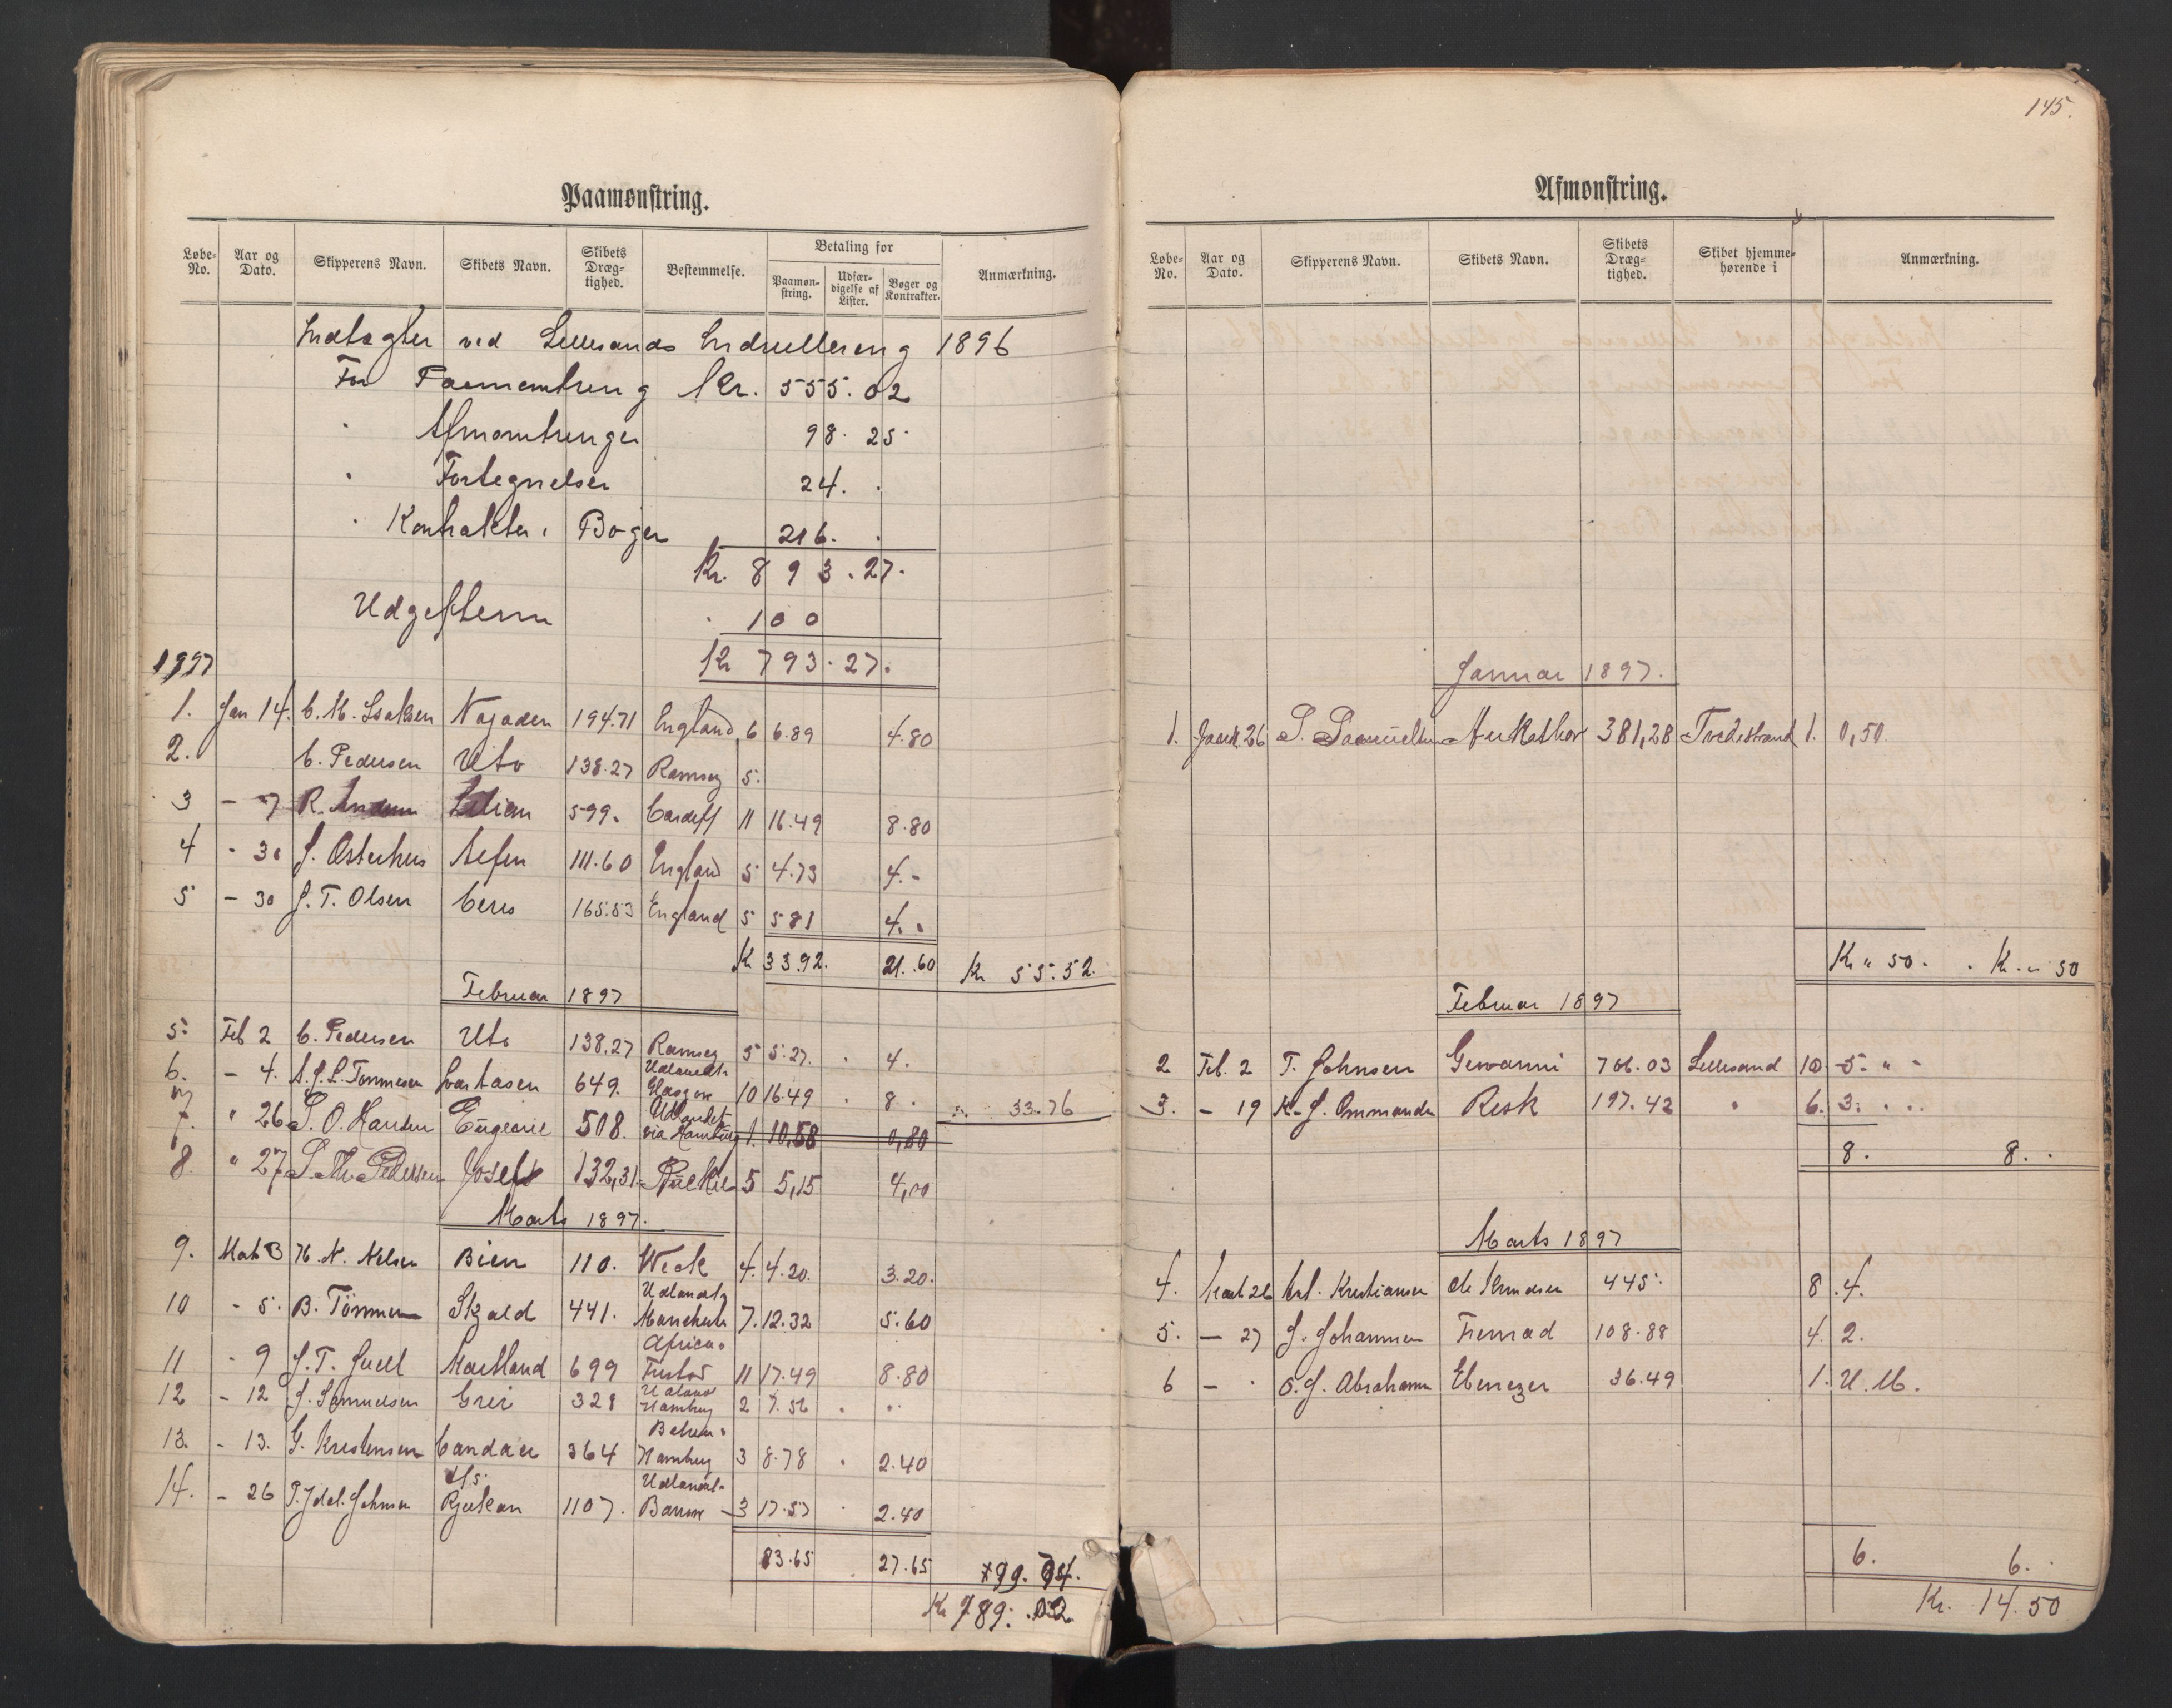 145.
Paamønstring.
Løbe-No. Aar og Dato. Skipperens Navn. Skibets Navn. Skibets Dræg-tighed. Bestemmelse. Betaling for Paamøn-string. Udfær-digelse af Lister. Bøger og Kontrakter. Anmærkning.
Indtægter ved Lillesands Indrullering 1896
For Paamønstring Kr. 555.02
" Afmønstringer 98.25
" Fortegnelser 24.
" Kontrakter, Bøger 216.
Kr. 893.27.
Udgifterne 100
Kr 793.27.
1897
1. Jan 14. C. M. Isaksen Najaden 194.71 England 6 6.89 4.80
2. C. Pedersen Uto 138.27 Ramsey 5.
3 - 7 R. Lilian 599. Cardiff 11 16.49 8.80
4 " 30 J. Osterhus 111.60 England 5 4.73 4.-
5 - 30 J. T. Olsen Ceres 165.53 England 5 5 81 4.
Kr 33.92. 21.60 Kr 55.52.
Februar 1897
5. Feb 2 C. Pedersen Uto 138.27 Ramsey 5 5.27. 4.
6. - 4. A. J. L. Tønnesen 649. Udlandet Glasgow 10 16.49 8. 33.76
7. " 26 S. O. Hansen Eugenie 508. Udlandet via Hamburg 1. 10,58 0,80
8. " 27 S. M. Pedersen Josefa 132,31 5 5,15 4,00
Marts 1897.
9. Mats 3 H. N. Nilsen Bien 110. Wick 4. 4.20. 3.20.
10 - 5. B. Tönnesen Skjald 441. Udlandet Manchester 7. 12.32 5.60
11 " 9 J. T. Juell Maitland 699 Africa 11 17.49 8.80
12 - 12 J. Samuelsen Grei 328 Udland Hamburg 2 7.56
13. - 13. G. Kristensen Candace 364 Hamburg 3 8.78 2.40
14. - 26 Johnsen Rjukan 1107. Udlandet Barrow 3 17.57 2.40
83.65 27.65 99.
Kr 789.
Afmønstring.
Løbe-No. Aar og Dato. Skipperens Navn. Skibets Navn. Skibets Dræg-tighed. Skibet hjemme-hørende i Anmærkning.
Januar 1897.
1. 26 S. Samuelsen 381,28 Tvedestrand 1. 0,50
Kr " 50. Kr. " 50
Februar 1897
2 Feb. 2 T. Johnsen Giovanni 766.03 Lillesand 10 5. " -
3. - 19 K. J. Ommundsen Resk 197.42 " 6. 3.
8. 8.
Marts 1897
4. 26 Kristiansen 445. 8 4.
5. - 27 J. Johannesen Fremad 108.88 4. 2.
6 - " O. J. Abrahamsen Ebenezer 36.49 1. U. M.
6. 6.
Kr. 14.50